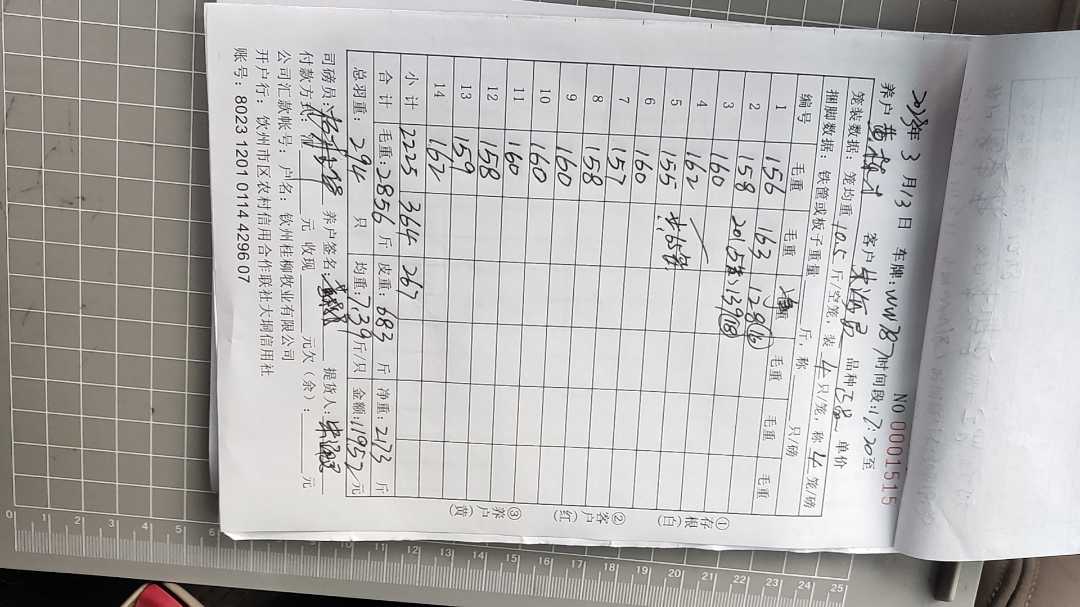 NO 0001515
2025年 3 月 13 日 车牌: WW787 时间段: 17:20 至
养户 客户 朱海 品种 单价
笼装数据: 笼均重 10.5 斤/空笼, 装 4 只/笼, 称 4 笼/磅
捆脚数据: 铁筐或板子重量 斤, 称 只/磅
编号 毛重 毛重 毛重 毛重 毛重 毛重
1 156 163 128 (16)
2 158 2015 139 (18)
3 160
4 162
5 155 共65笼
6 160
7 157
8 158
9 160
10 160
11 160
12 158
13 159
14 162
小计 2225 364 267
合计 毛重: 2856 斤 皮重: 683 斤 净重: 2173 斤
总羽重: 294 只 均重: 7.39 斤/只 金额: 11952 元
司磅员: 养户签名: 提货人:
付款方式: 元 收现 元欠(余): 元
公司汇款帐号: 户名: 钦州桂柳牧业有限公司
开户行: 钦州市区农村信用合作联社大垌信用社
账号: 8023 1201 0114 4296 07
①存根(白)
②客户(红)
③养户(黄)
0 1 2 3 4 5 6 10 11 12 13 14 15 16 17 18 19 20 21 22 23 24 25